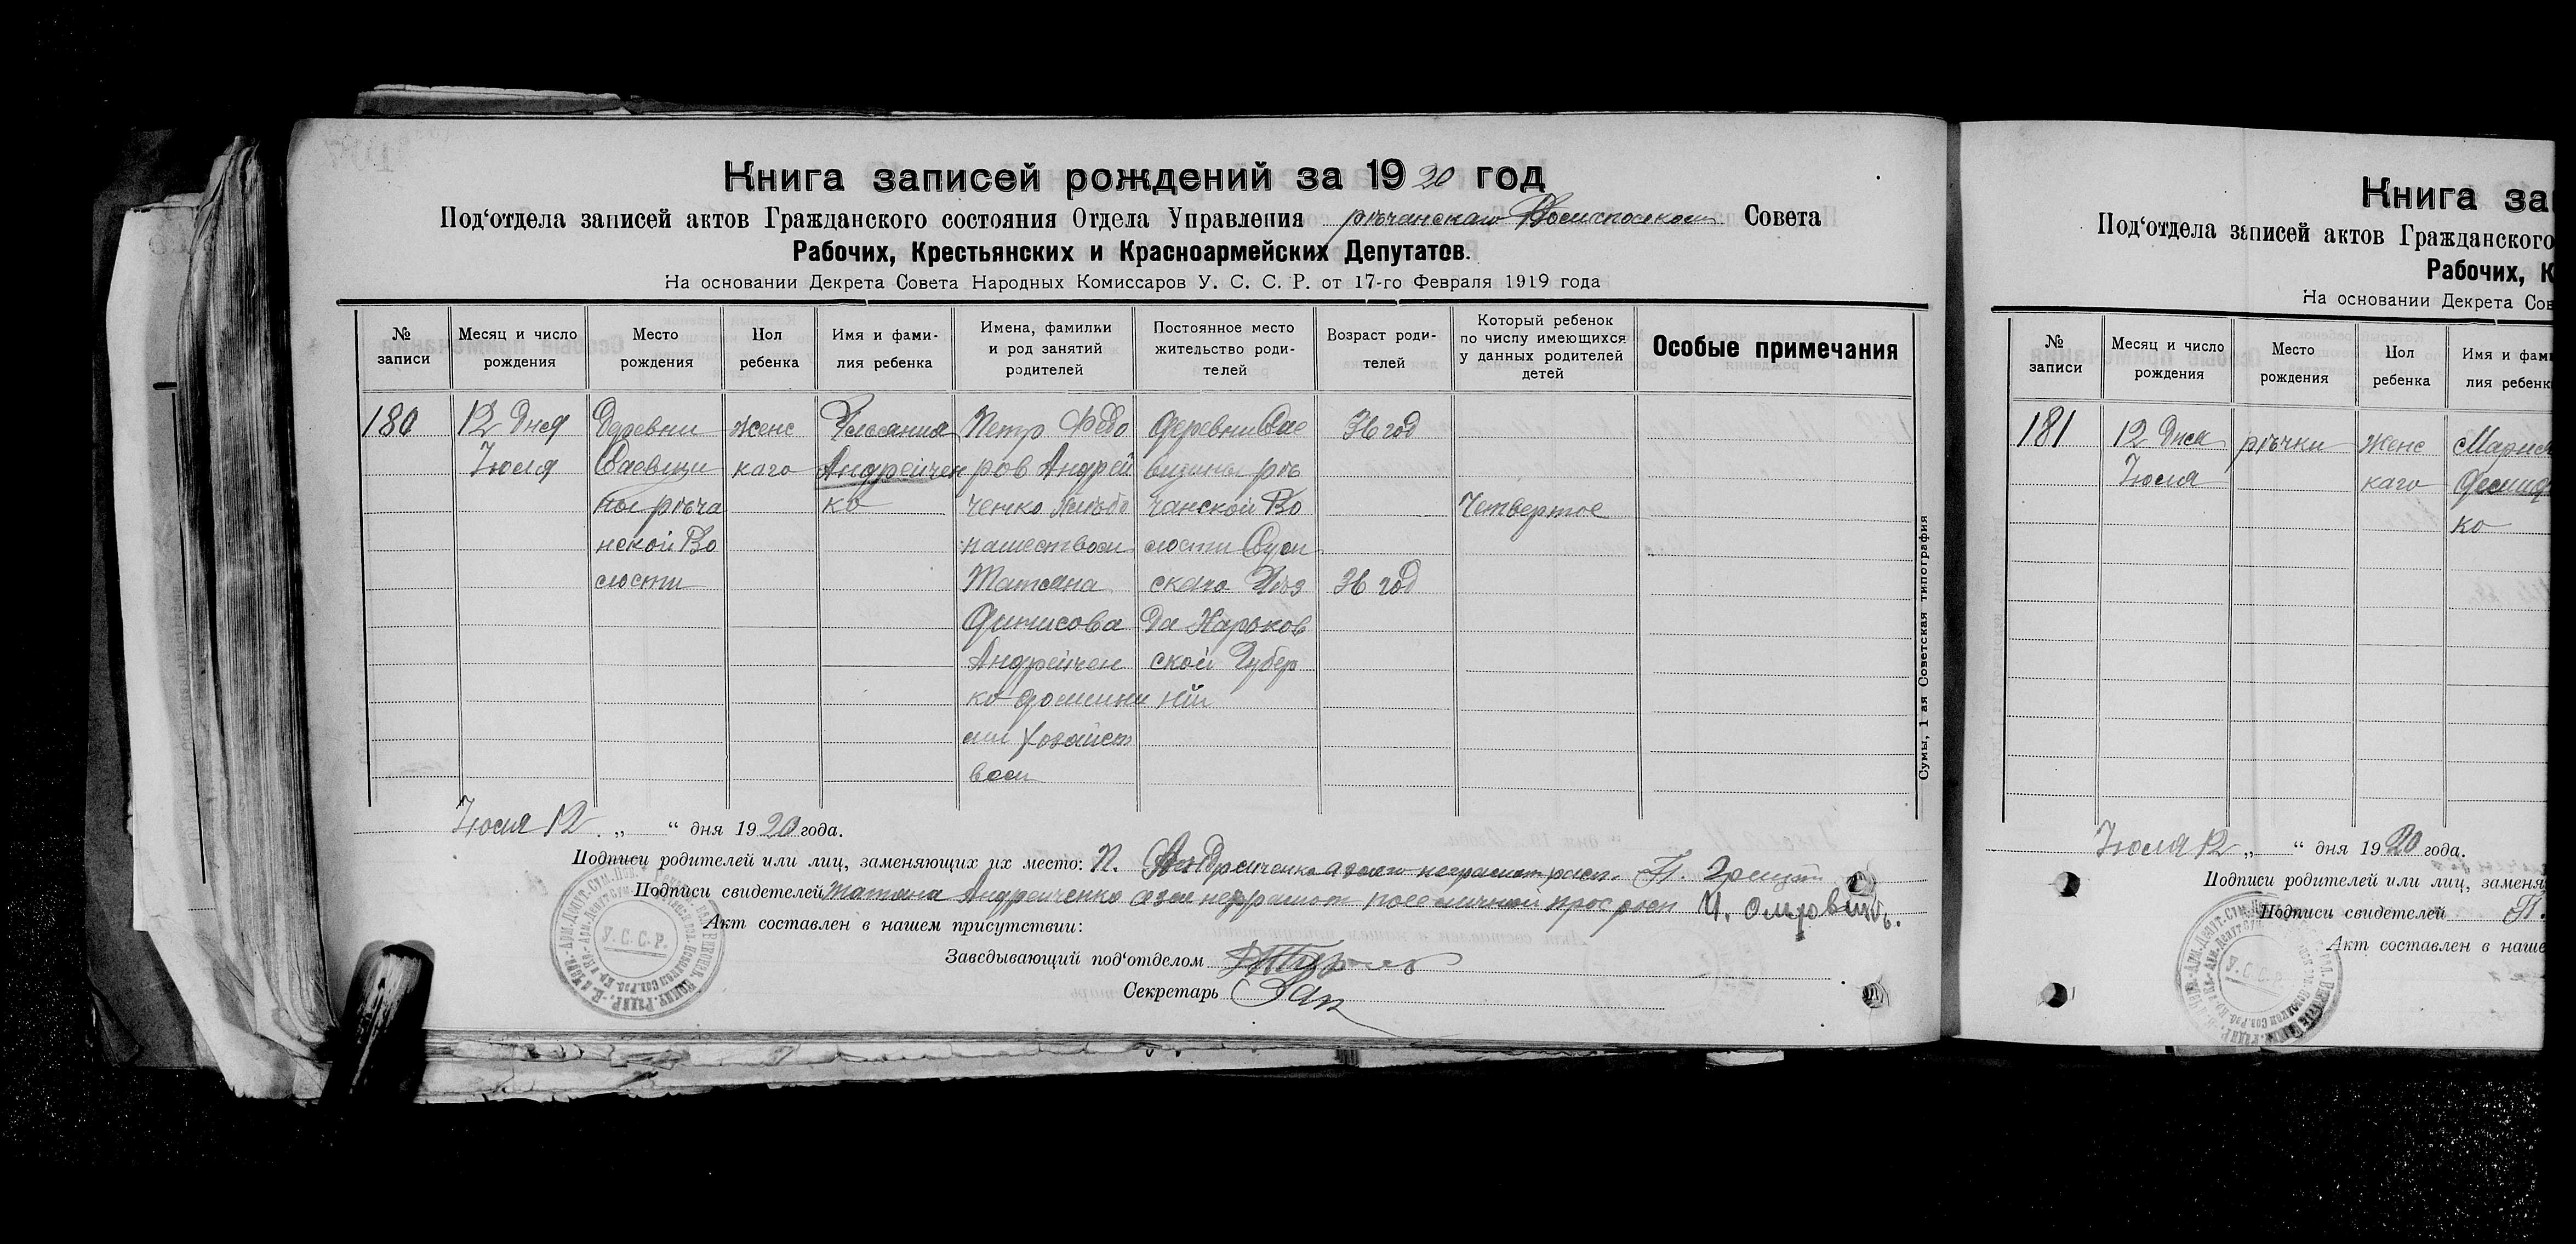 Книга записей рождений за 1920 год
Под‘отдела записей актов Гражданского состояния Отдела Управления рѣчанскаго Волисполкома Совета
Рабочих, Крестьянских и Красноармейских Депутатов.
На основании Декрета Совета Народных Комиссаров У. С. С. Р. от 17-го Февраля 1919 года
№ записи
Месяц и число рождения
Место рождения
Пол ребенка
Имя и фамилия ребенка
Имена, фамилии и род занятий родителей
Постоянное место жительство родителей
Возраст родителей
Который ребенок по числу имеющихся у данных родителей детей
Особые примечания
180
12 Дня
Июля
Деревни
ны рѣча
нской Во
лости
женс
каго
Андрейчен
ко
Петр Федо
ров Андрей
ченко Хлѣбо
пашеством
Татяна
Андрейчен
ко домашни
ми Хозяйст
вом
деревни
вщины рѣ
чанской Во
лости Сум
скаго Уѣз
да Харьков
ской Губер
нии
36 год
36 год
Четвертое
Сумы, 1-ая Советская типография
Июля 12 „ “ дня 1920 года.
Подписи родителей или лиц, заменяющих их место: П. Андрейченко
Подписи свидетелей Татяна Андрейченко
Акт составлен в нашем присутствии:
Заведывающий под‘отделом
Секретарь
У. С. С. Р.
Книга за
Под‘отдела записей актов Гражданского
Рабочих, К
На основании Декрета Сов
№ записи
Месяц и число рождения
Место рождения
Пол ребенка
Имя и фами
лия ребенк
181
12 Дня
Июля
рѣчки
женс
каго
Мария
ко
Июля 12 „ “ дня 1920 года.
Подписи родителей или лиц, заменя
Подписи свидетелей
Акт составлен в наше
У. С. С. Р.